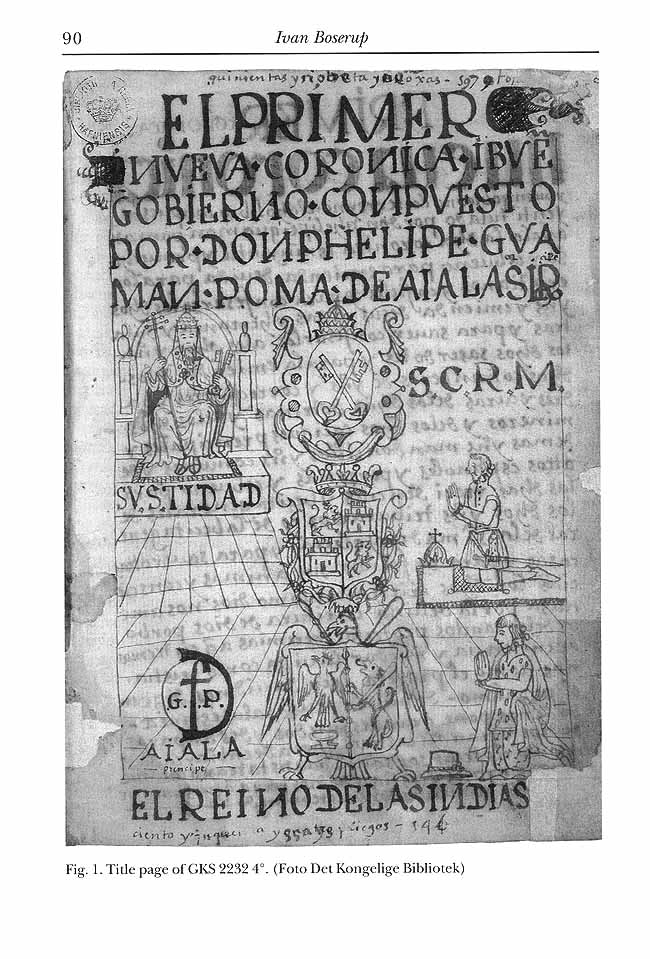 90
Ivan Boserup
EL PRIMER
NVEVA·CORONICA·IBVE
GOBIERNO·CONPVESTO
POR·DON PHELIPE·GVA
MAN·POMA·DE AIALA S
S.C.R.M.
SV.S.TIDAD
G. P.
AIALA
principe
EL REINO DE LAS INDIAS
ciento y
Fig. 1. Title page of GKS 2232 4°. (Foto Det Kongelige Bibliotek)